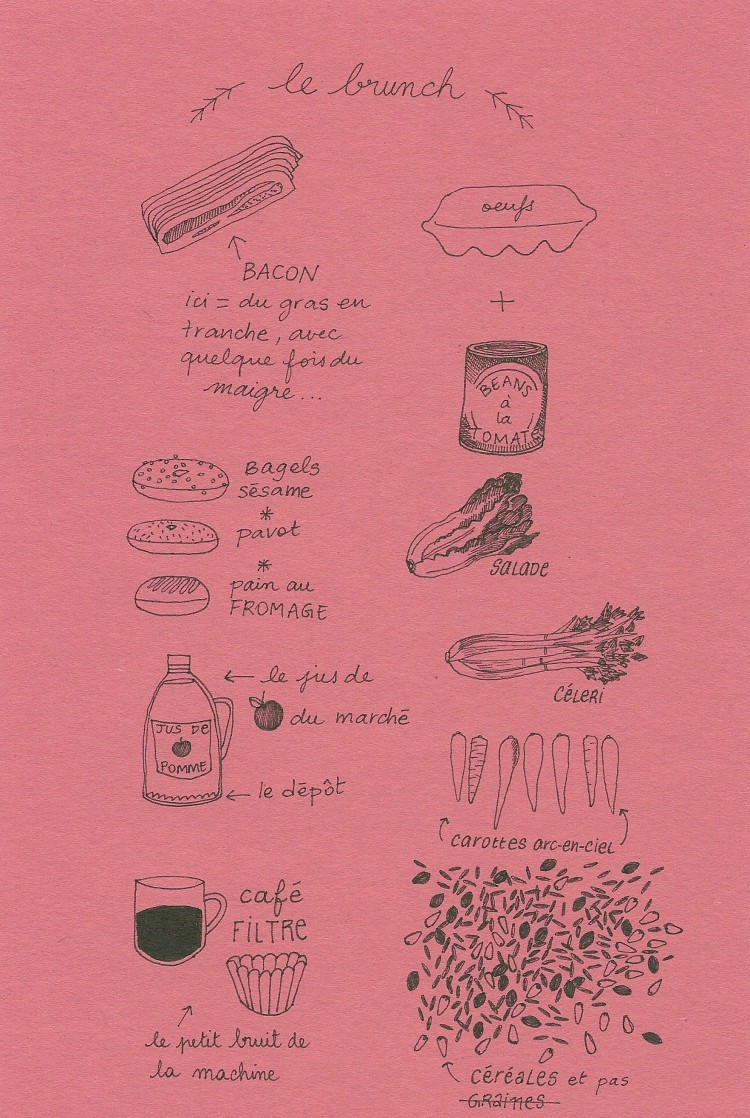 le brunch
BACON
ici = du gras en
tranche, avec
quelque fois du
maigre...
oeufs
+
BEANS
à
la
TOMATE
Bagels
sésame
*
pavot
*
pain au
FROMAGE
SALADE
CÉLERI
le jus de
du marché
JUS DE
POMME
le dépôt
carottes arc-en-ciel
café
FILTRE
le petit bruit de
la machine
céréales et pas
GRaines